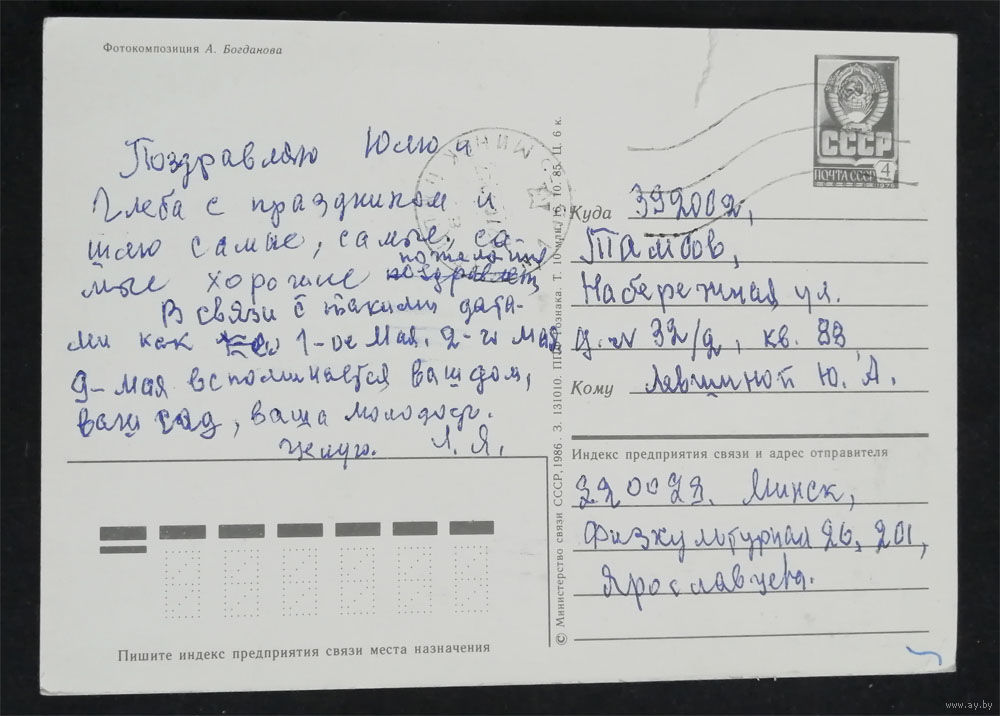 Фотокомпозиция А. Богданова
Поздравляю Юлю и
Глеба с праздником и
шлю самые, самые, са-
мые хорошие пожелания
В связи с такими дата-
ми как 1-ое Мая, 2-го мая
9-мая вспоминается ваш дом,
ваш сад, ваша молодость.
Целую. Л. Я.
Пишите индекс предприятия связи места назначения
© Министерство связи СССР, 1986. З. 131010. ППФ Гознака. Т. 10 млн. 10. 85. Ц. 6 к.
МИНСК
СССР
ПОЧТА СССР 4
1976
Куда 392002,
Тамбов,
Набережная ул.
д. № 32/2, кв. 83
Кому Лявшиной Ю. А.
Индекс предприятия связи и адрес отправителя
220028. Минск,
Физкультурная 26, 201,
Ярославцева.
www.ay.by